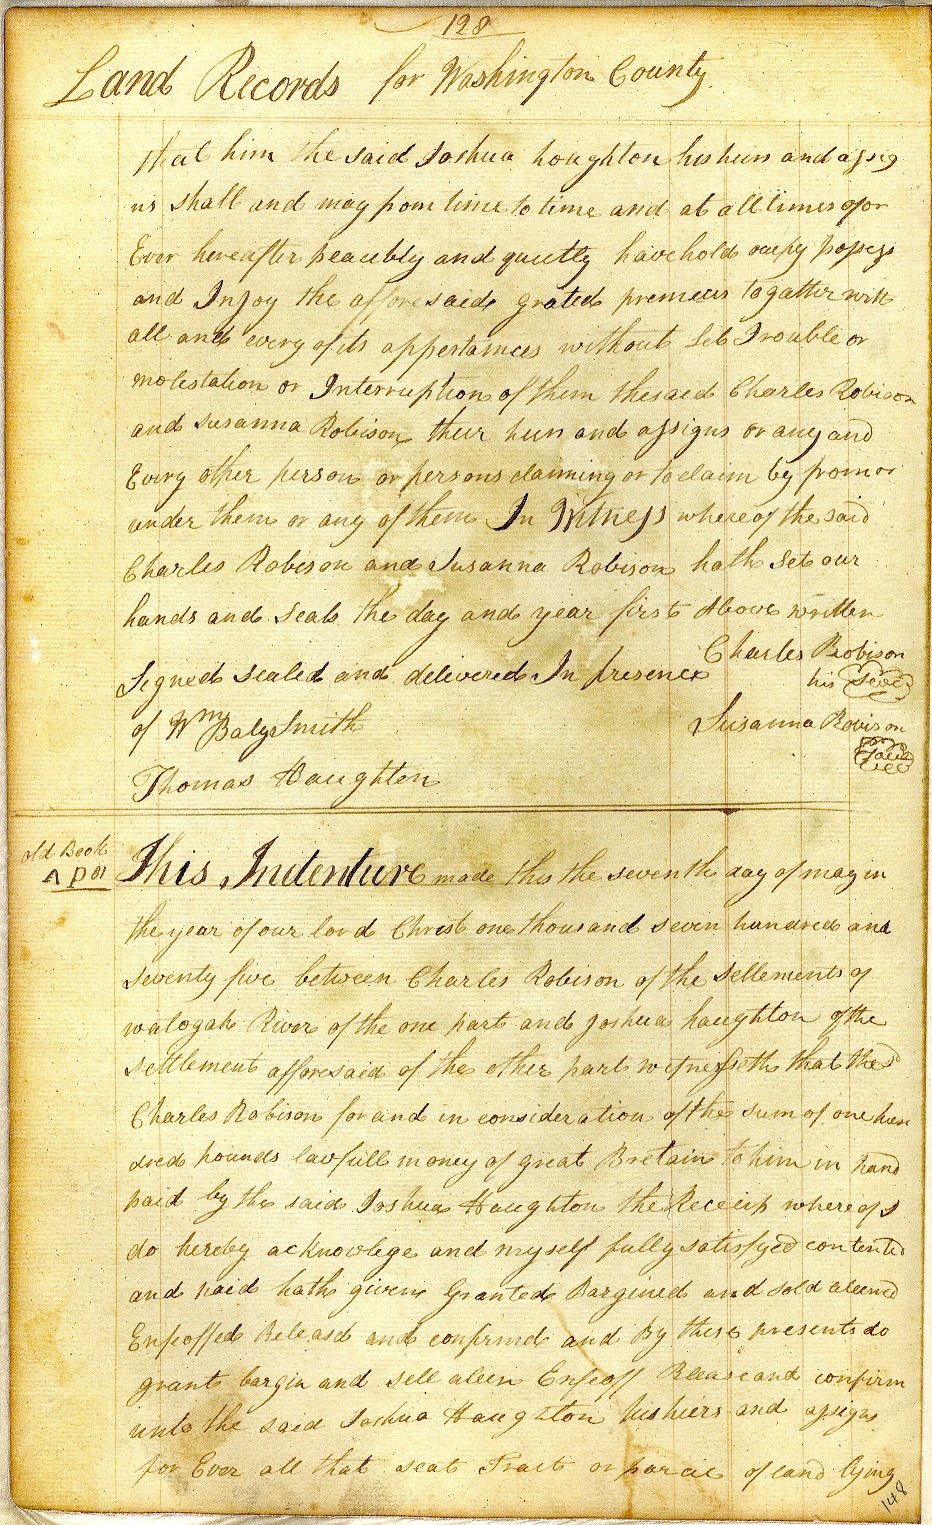 128
Land Records for Washington County
that him the said Joshua houghton his heirs and assig
ns shall and may from time to time and at all times for
Ever hereafter peacibly and quietly have hold ocupy possess
and Injoy the afforesaid grated premeces togatther with
all and every of its appertainces without Let Trouble or
molestation or Interruption of them the said Charles Robison
and Susanna Robison their heirs and assigns or any and
Every other person or persons claiming or to claim by from or
under them or any of them In Witness whereof the said
Charles Robison and Susanna Robison hath Set our
hands and Seals the day and year first above written
Charles Robison
Signed sealed and delivered In presence his Seal
of Wm Baly Smith Susanna Robison
Thomas Haughton
old Book
A P 01 This Indenture made this the seventh day of may in
the year of our lord Christ one thousand seven hundred and
seventy five between Charles Robison of the Settlements of
watogah River of the one part and Joshua haughton of the
settlement afforesaid of the other part witnesseth that the sd
Charles Robison for and in consideration of the sum of one hun
dred pounds lawfull money of great Bretain to him in hand
paid by the said Joshua Haughton the Receip where of I
do hereby acknowlege and myself fully satisfyed contented
and paid hath given Granted Bargined and sold aleened
Enfeoffed Releasd and confirmd and By these presents do
grant bargin and sell aleen Enfeoff Release and confirm
unto the said Joshua Haughton his hiers and assigns
for Ever all that seat Tract or parcel of land lying
148